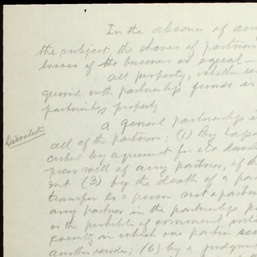 In the absence of any
the subject, the shares of partners
losses of the business are equal —
all property, whether
quired with partnership funds is
partnership property
A general partnership is
all of the partners: (1) By lapse
by agreement for its
press will of any partner, if the
(3) by the death of a par
transfer to a person not a partner
any partner in the partnership
or the
country in which one partner
another resides; (6) by a judgment